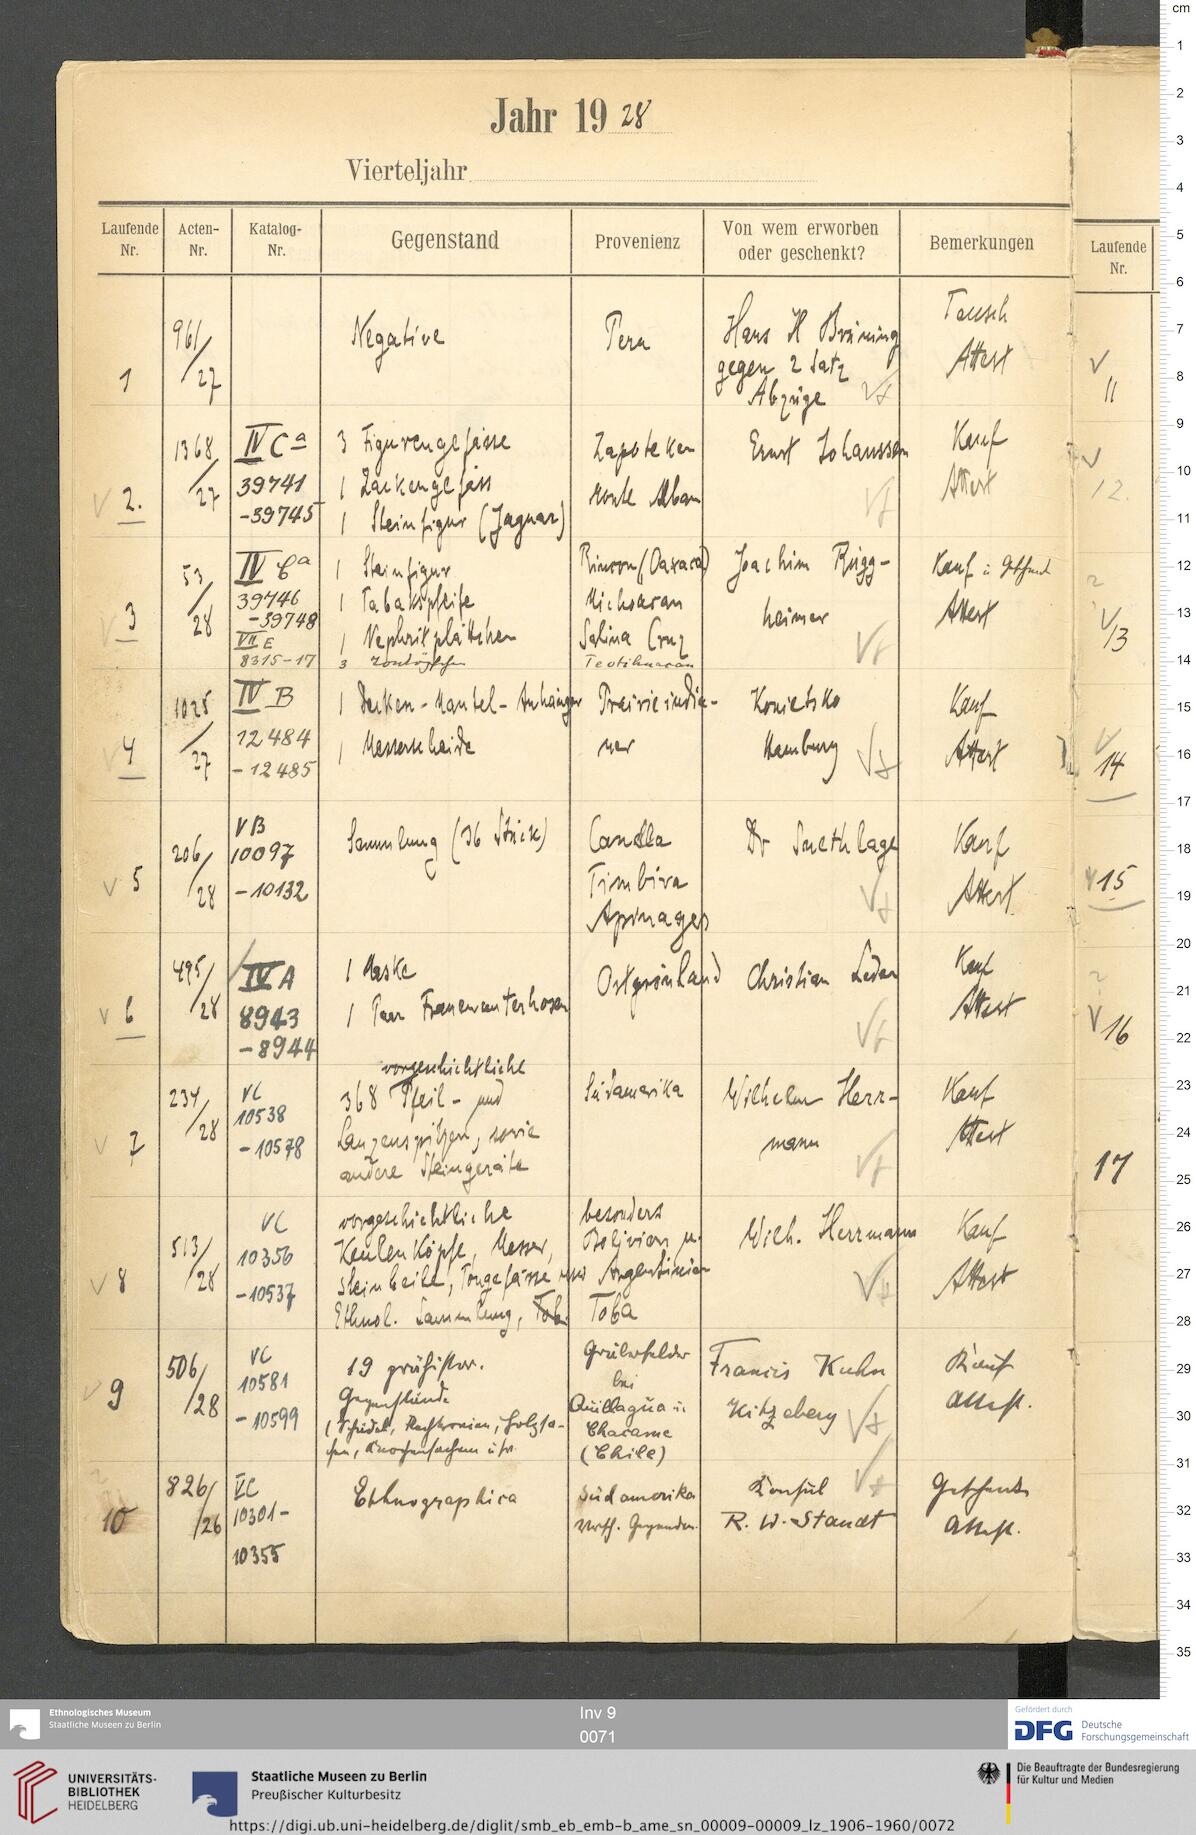 Jahr 19 28
Vierteljahr
Laufende Nr.
Acten-Nr.
Katalog-Nr.
Gegenstand
Provenienz
Von wem erworben oder geschenkt?
Bemerkungen
1
961/27
Negative
Peru
Hans H Brüning
gegen 2 Satz
Abzüge
Tausch
Attest
2.
1368/27
IV Ca
39741
-39745
3 Figurengefässe
1 Zackengefäss
1 Steinfigur (Jaguar)
Zapoteken
Monte Alban
Ernst Johanssen
Kauf
Attest
3
53/28
IV Ca
39746
-39748
VII E
8315-17
1 Steinfigur
1 Tabakspfeife
1 Nephritplättchen
3
Rincon (Oaxaca)
Michoacan
Salina Cruz
Teotihuacan
Joachim Rügg-
heimer
Kauf u. Geschenk
Attest
4
1025/27
IV B
12484
-12485
1 Decken-Mantel-Anhänger
1 Messerscheide
Prairieindia-
ner
Konietzko
Hamburg
Kauf
Attest
5
206/28
VB
10097
-10132
Sammlung (36 Stück)
Canella
Timbira
Apinages
Dr Snethlage
Kauf
Attest
6
495/28
IV A
8943
-8944
1 Maske
1 Paar Frauenunterhosen
Ostgrönland
Christian Leden
Kauf
Attest
7
234/28
VC
10538
-10578
vorgeschichtliche
368 Pfeil- und
Lanzenspitzen, sowie
andere Steingeräte
Südamerika
Wilhelm Herr-
mann
Kauf
Attest
8
513/28
VC
10356
-10537
vorgeschichtliche
Keulenköpfe, Messer,
Steinbeile, Tongefässe und
Ethnol. Sammlung, Tob.
besonders
Bolivien u.
Argentinien
Toba
Wilh. Herrmann
Kauf
Attest
9
506/28
VC
10581
-10599
19 prähistor.
Gegenstände
Gräberfelder
bei
Quillagua u.
Chacance
(Chile)
Francis Kuhn
Kitzeberg
Kauf
Attest.
10
826/26
VC
10301-
10355
Ethnographica
Südamerika
versch. Gegenden.
Konsul
R. W. Staudt
Geschenk
Attest.
Laufende
Nr.
11
12.
13
14
15
16
17
cm
1
2
3
4
5
6
7
8
9
10
11
12
13
14
15
16
17
18
19
20
21
22
23
24
25
26
27
28
29
30
31
32
33
34
35
Ethnologisches Museum
Staatliche Museen zu Berlin
Inv 9
0071
Gefördert durch
DFG Deutsche
Forschungsgemeinschaft
UNIVERSITÄTS-
BIBLIOTHEK
HEIDELBERG
Staatliche Museen zu Berlin
Preußischer Kulturbesitz
Die Beauftragte der Bundesregierung
für Kultur und Medien
https://digi.ub.uni-heidelberg.de/diglit/smb_eb_emb-b_ame_sn_00009-00009_lz_1906-1960/0072